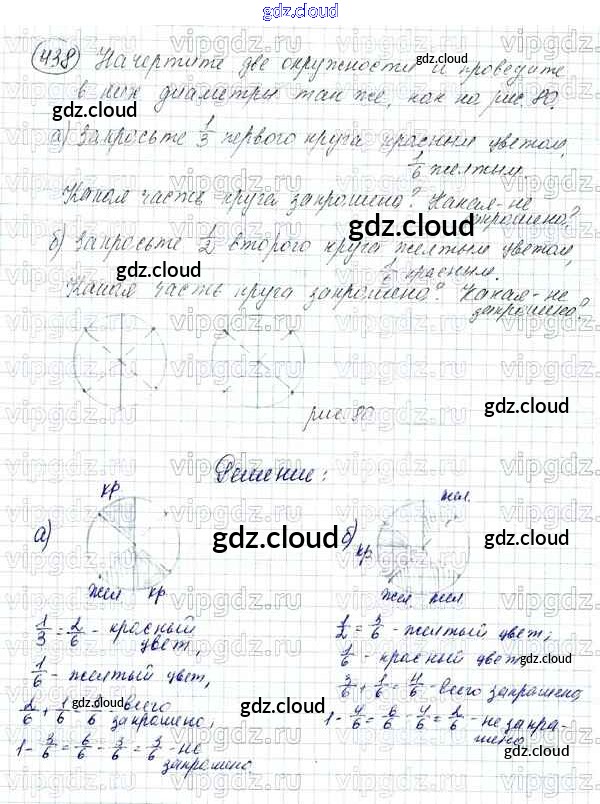 gdz.cloud
438 Начертите две окружности и проведите
в них диаметры так же, как на рис 80.
а) Закрасьте 1/3 первого круга красным цветом,
1/6 желтым.
Какая часть круга закрашена? Какая-не
закрашена?
б) Закрасьте 1/2 второго круга желтым цветом,
1/6 красным.
Какая часть круга закрашена? Какая-не
закрашена?
рис. 80
Решение:
а) кр
жел кр
1/3 = 2/6 - красный
цвет,
1/6 - желтый цвет,
2/6 + 1/6 = 3/6 - всего
закрашено,
1 - 3/6 = 6/6 - 3/6 = 3/6 - не
закрашено.
б) жел.
кр.
жел. жел
1/2 = 3/6 - желтый цвет,
1/6 - красный цвет
3/6 + 1/6 = 4/6 - всего закрашено
1 - 4/6 = 6/6 - 4/6 = 2/6 - не закра-
шено